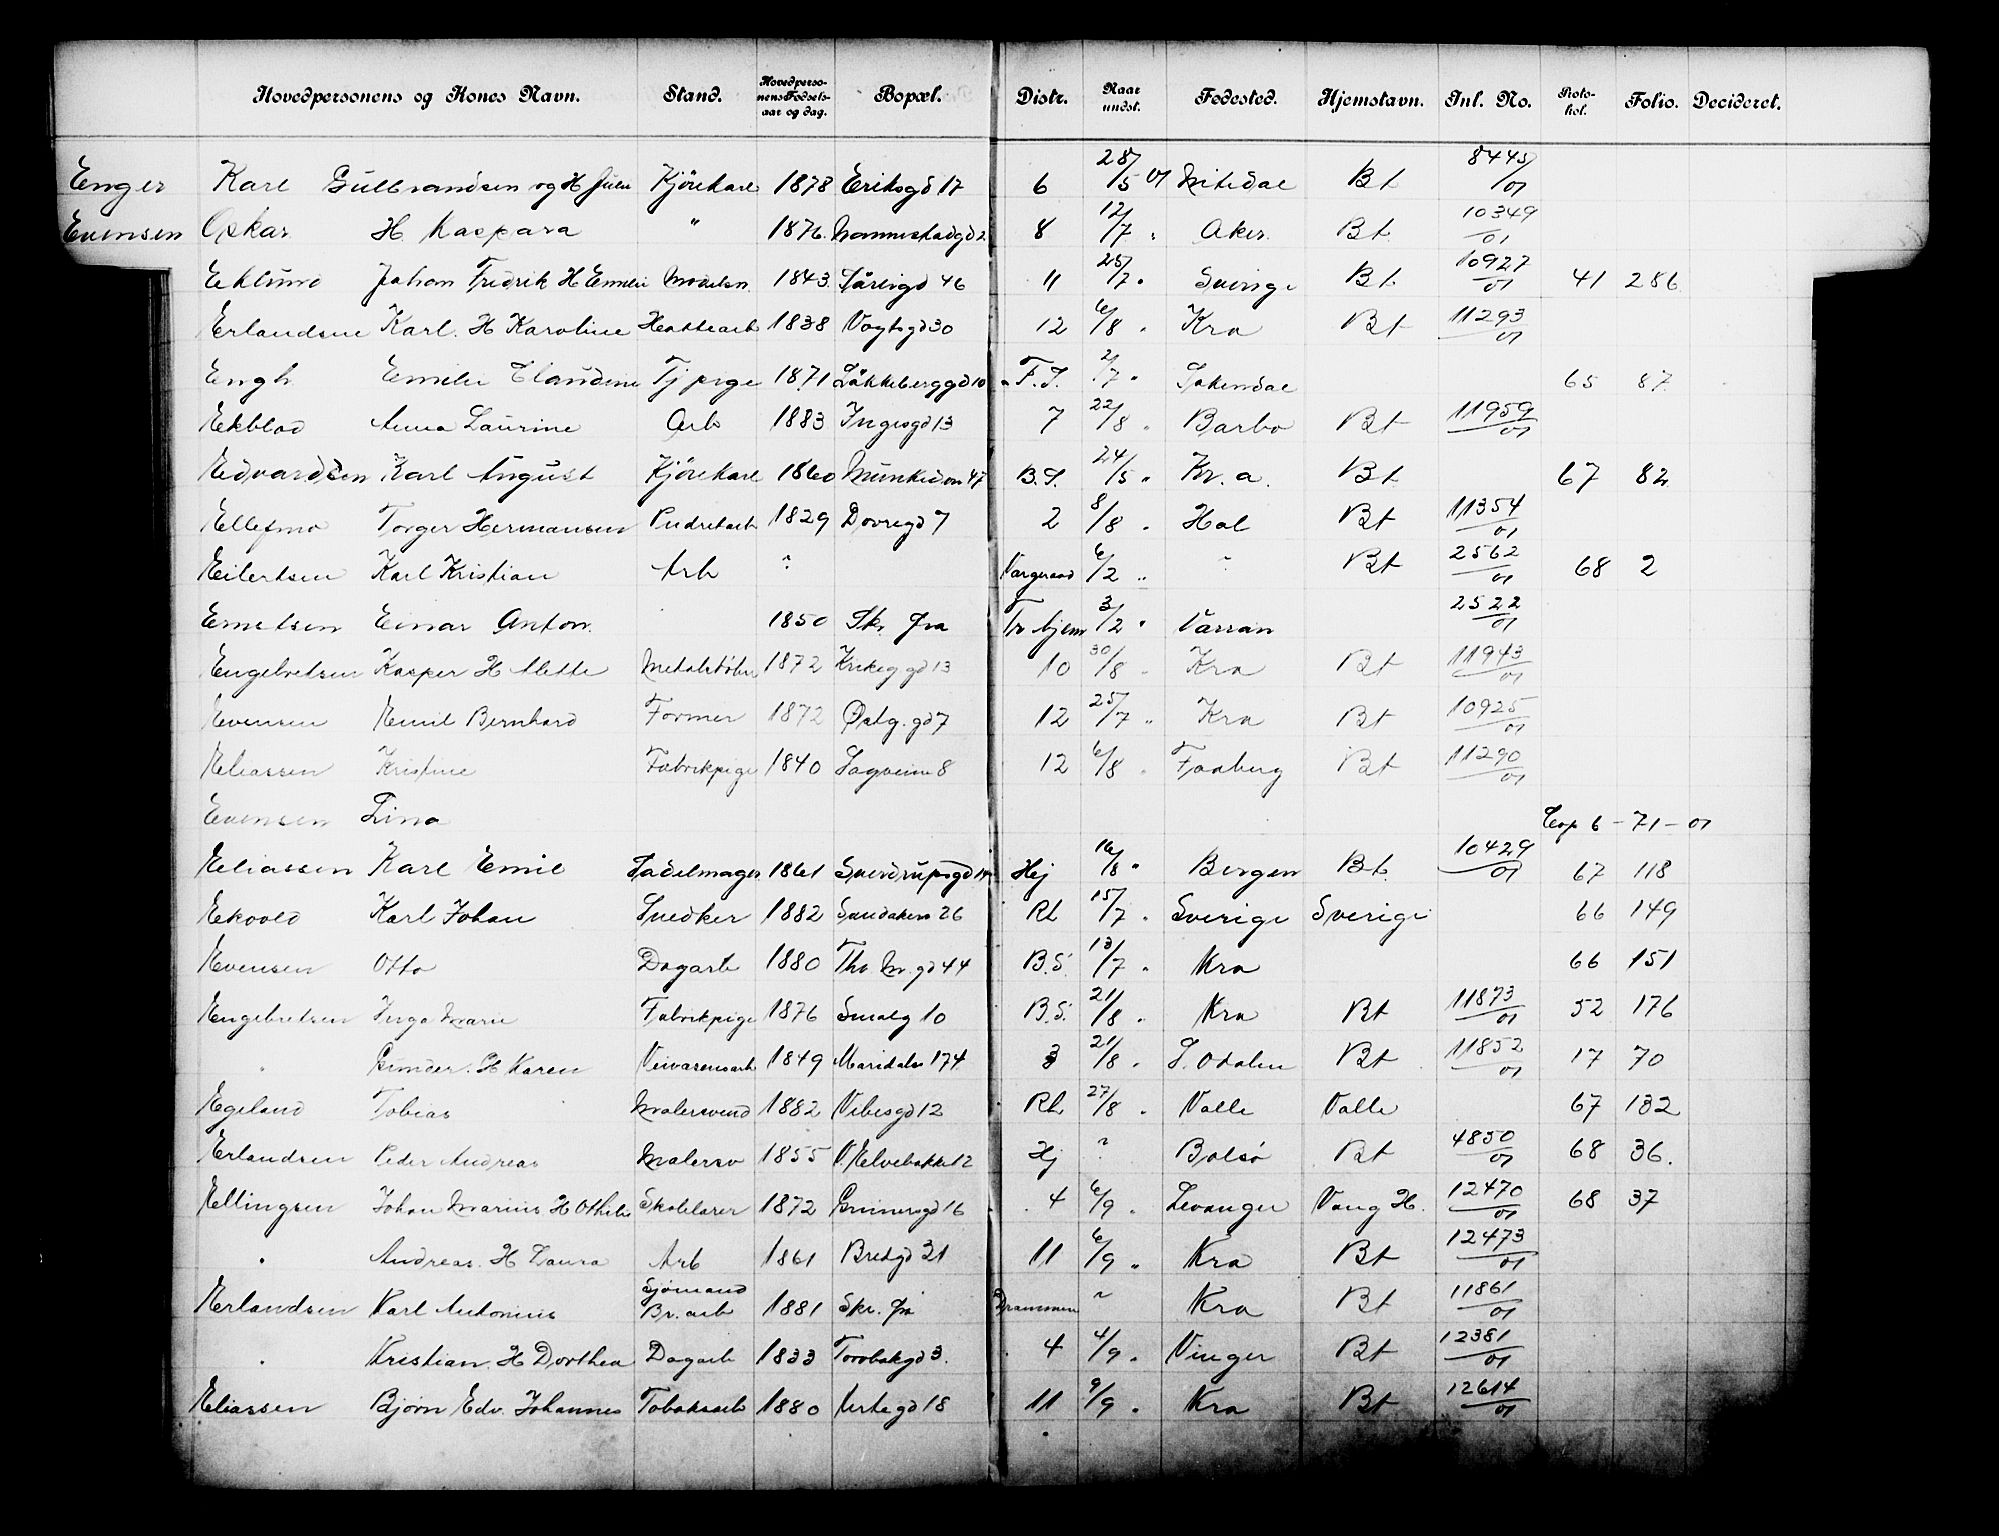 Hovedpersonens og Kones Navn. Stand. Hovedperso-nens Fødsels-aar og dag. Bopæl. Distr. Naar undst. Fødested. Hjemstavn. Inl. No. Proto-kol. Folio. Decideret.
Enger Karl Gulbrandsen og H Julie Kjørekarl 1878 Eriksgd 17 6 28/5 01 Nitedal Bt 8445/01
Evensen Oskar H Kaspara " 1876. Mannestadgd 2 8 12/7 " Aker Bt 10349/01
Eklund Johan Fredrik H Emelie Modelsn. 1843. Sårligd 46 11 25/7 " Sverige Bt 10927/01 41 286
Erlandsen Karl. H Karoline Hattearb 1838 Vogtsgd 30 12 6/8 " Kra Bt 11293/01
Engh Emelie Claudine Tj pige 1871 Løkkeberggd 10 F.S. 2/7 " Sokendal 65 87
Ekblad Anna Laurine Arb 1883 Ingesgd 13 7 22/8 " Barbo Bt 11959/01
Edvardsen Karl August Kjørekarl 1860 Munkedvn 47 B.S. 24/5 " Kr.a. Bt 67 82
Ellefmo Torger Hermansen Pudretarb 1829 Dovregd 7 2 8/8 " Hol Bt 11354/01
Eilertsen Karl Kristian Arb " 6/2 " " Bt 2562/01 68 2
Ernetsen Einar Anton. 1850 Sk. fra Tr.hjem 3/2 " Värran 2522/01
Engebretsen Kasper H Mette Metalstøber 1872 Krikeggd 13 10 30/8 " Kra Bt 11943/01
Evensen Emil Bernhard Former 1872 Øvlg. gd 7 12 25/7 " Kra Bt 10925/01
Eliassen Kristine Fabrikpige 1840 Sagveien 8 12 6/8 " Faaberg Bt 11290/01
Evensen Lina Cop 6 - 71 - 01
Eliassen Karl Emil Sadelmager 1861 Sverdrupsgd Hej 16/8 " Bergen Bt. 10429/01 67 118
Ekvold Karl Johan Snedker 1882 Sandakerv 26 RL 15/7 " Sverige Sverige 66 149
Evensen Otto Dagarb 1880 Thv M. gd 44 B.S. 13/7 " Kra 66 151
Engebretsen Inga Marie Fabrikpige 1876 Smalg 10 B.S. 21/8 " Kra Bt 11873/01 52 176
" Gunder. H Karen Veivæsensarb 1849 Maridalsv 174 3 21/8 " S. Odalen Bt 11852/01 17 70
Egeland Tobias Malersvend 1882 Vibesgd 12 RL 27/8 " Valle Valle 67 132
Erlandsen Peder Andreas Malersv 1855 V. Elvebakke 12 Hj " Bolsø Bt 4850/01 68 36.
Ellingsen Johan Marius H Othilie Skolelærer 1872 Grünersgd 16 4 6/9 " Levanger Vang H. 12470/01 68 37
" Andreas. H Laura Arb 1861 Bredgd 21 11 6/9 " Kra Bt 12473/01
Erlandsen Karl Antonius Sjømand Br. arb 1881 Skr. fra Drammen " Kra Bt 11861/01
" Kristian. H Dorthea Dagarb 1833 Torvbakgd 3. 4 4/9 " Vinger Bt 12381/01
Eliassen Bjørn Edv. Johannes Tobaksarb 1880 Urtegd 18 11 9/9 " Kra Bt 12614/01